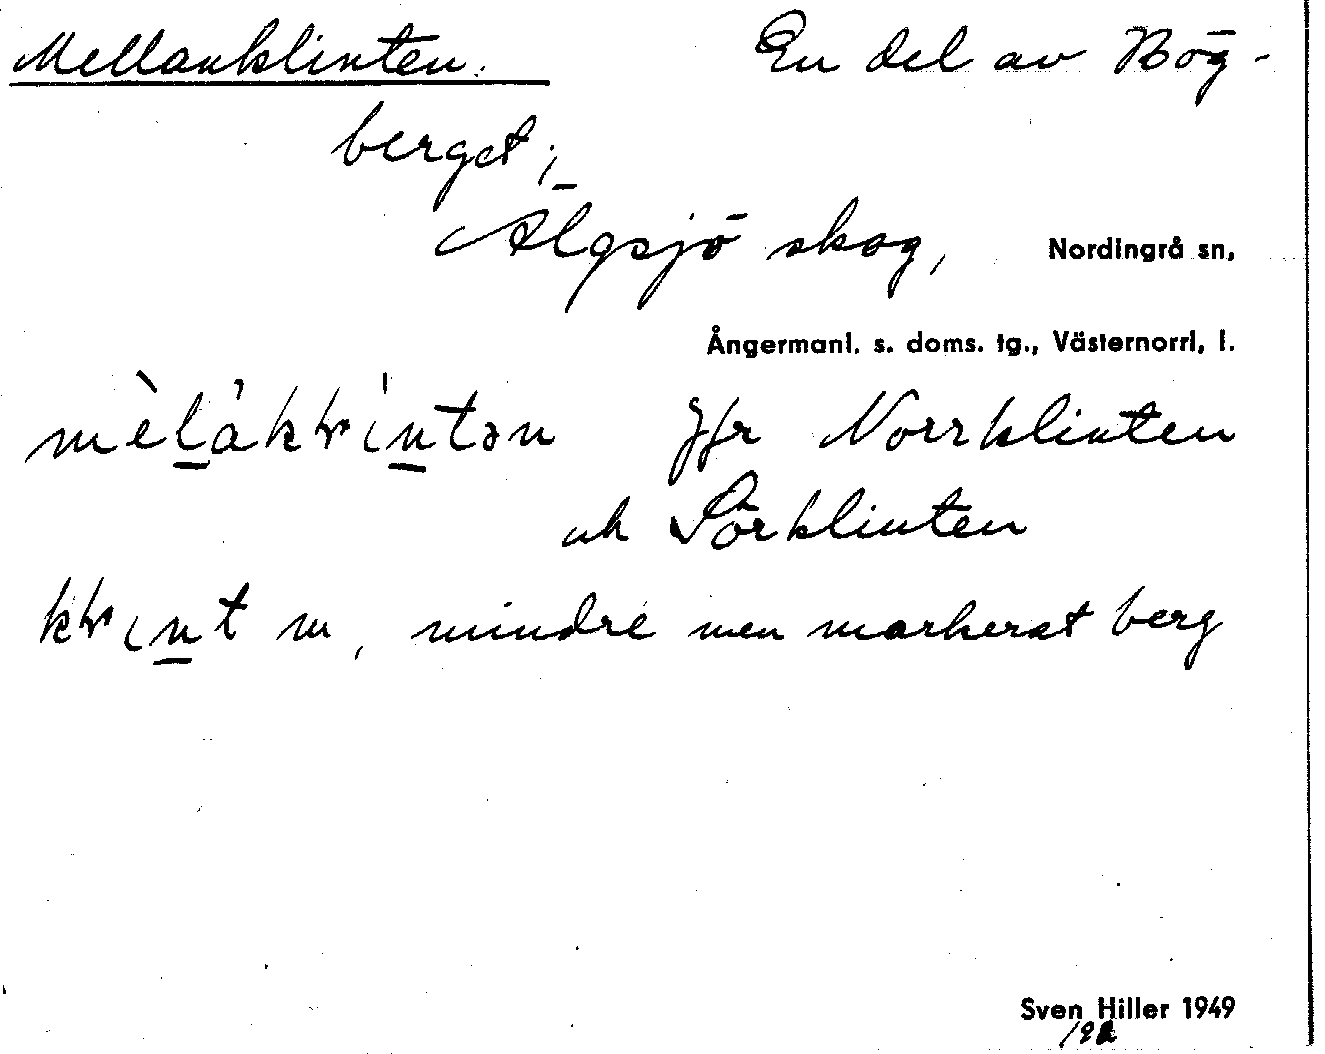 Mellanklinten. En del av Bög-
berget;
Älgsjö skog, Nordingrå sn,
Ångermanl. s. doms. tg., Västernorrl. l.
Jfr Norrklinten
och Sörklinten
m, mindre men markerat berg
Sven Hiller 1949